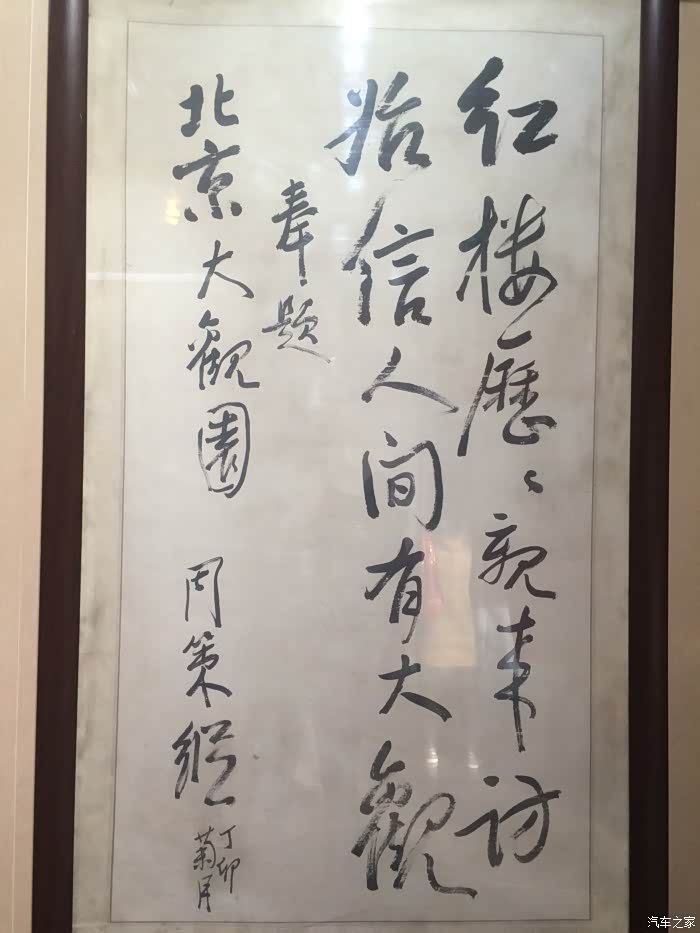 红楼歷〻親来访
始信人间有大觀
奉题
北京大觀園
周策縱
丁卯
菊月
汽车之家